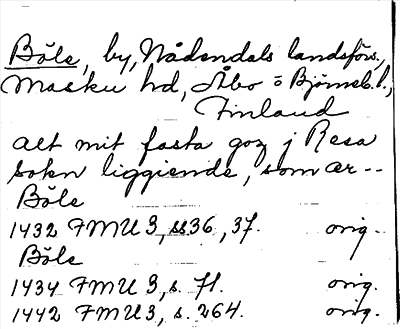 Böle, by, Nådendals landsförs.,
Masku hd, Åbo o Björneb. l.,
Finland
alt mit fasta goz j Resa
sokn liggiende, som ær --
Böle
1432 FMU 3, s. 36, 37. orig.
Böle
1434 FMU 3, s. 71. orig.
1442 FMU 3, s. 264. orig.